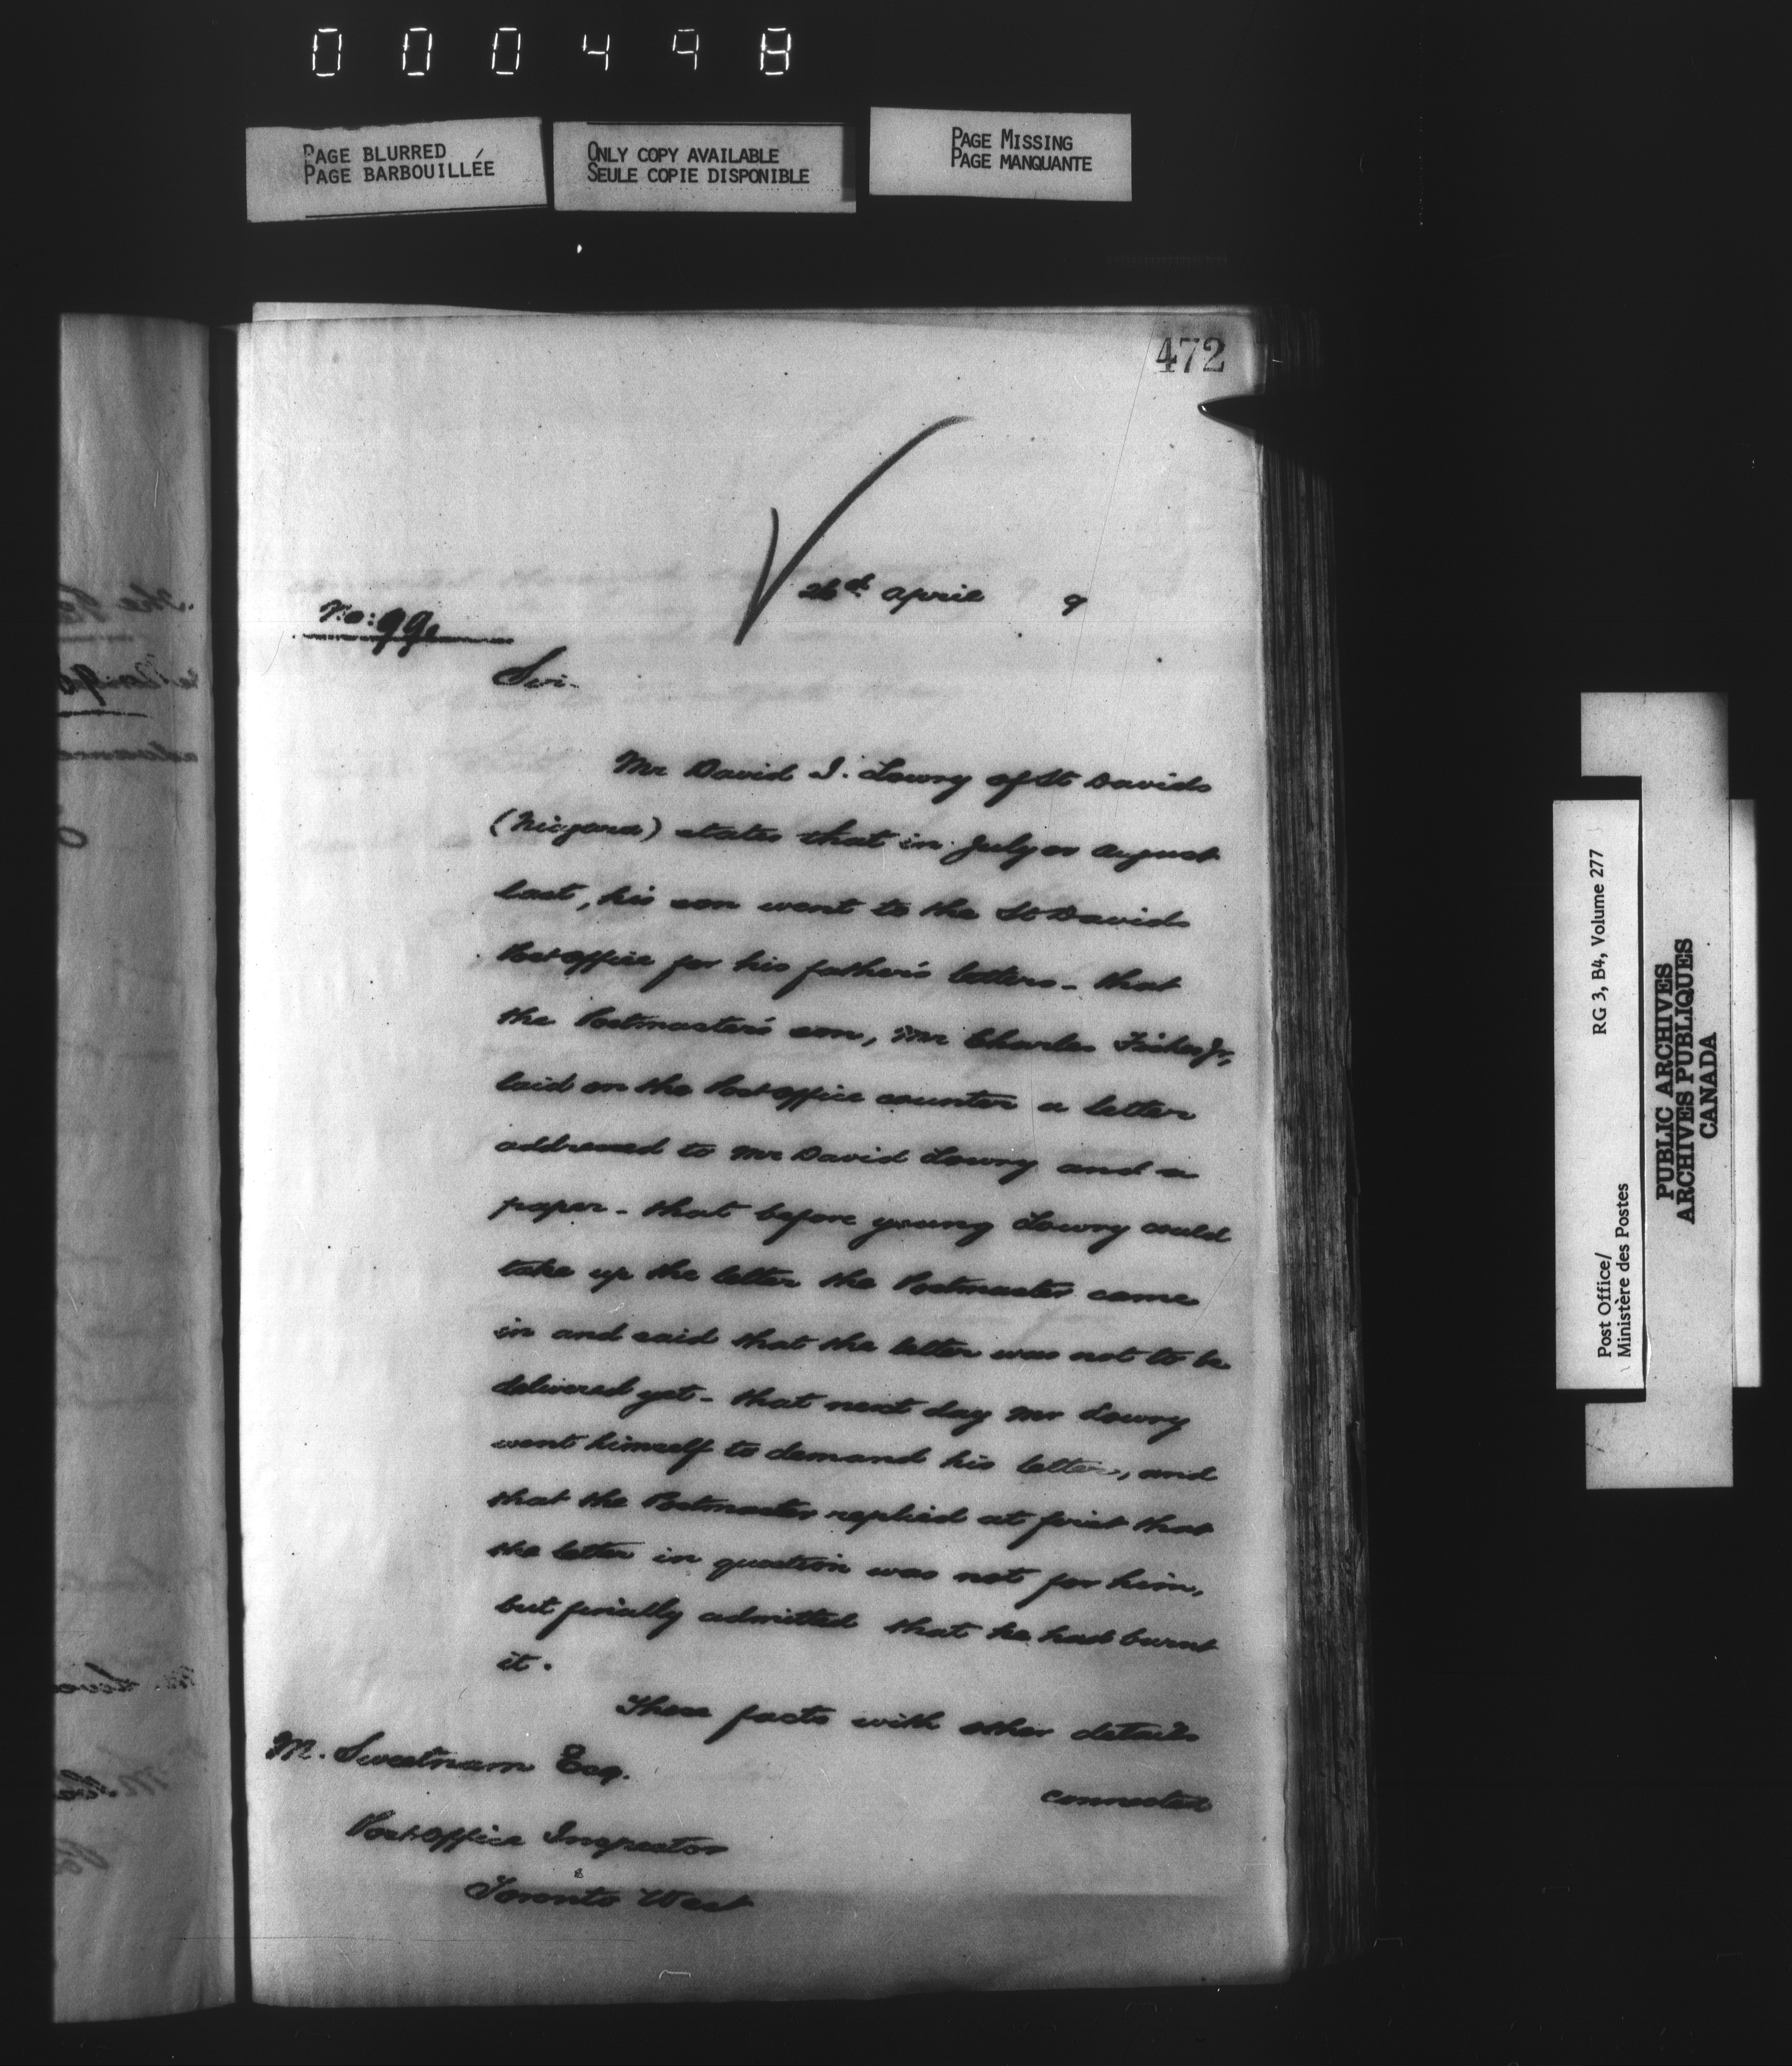 000498
PAGE BLURRED
PAGE BARBOUILLÉE
ONLY COPY AVAILABLE
SEULE COPIE DISPONIBLE
PAGE MISSING
PAGE MANQUANTE
472
April 9
No: 99
Sir.
Mr David I. Lowry of St Davids
(Niagara) states that in July or August
last, his son went to the St Davids
Post Office for his father's letters - that
the Postmaster's son, Mr Charles Fisher Jr,
laid on the Post Office counter a letter
addressed to Mr David Lowry and a
paper - that before young Lowry could
take up the letter the Postmaster came
in and said that the letter was not to be
delivered yet - that next day Mr Lowry
went himself to demand his letter, and
that the Postmaster replied at first that
the letter in question was not for him,
but finally admitted that he had burnt
it.
These facts with other details
connected
M. Sweetnam Esq.
Post Office Inspector
Toronto West
Post Office/
Ministère des Postes
RG 3, B4, Volume 277
PUBLIC ARCHIVES
ARCHIVES PUBLIQUES
CANADA